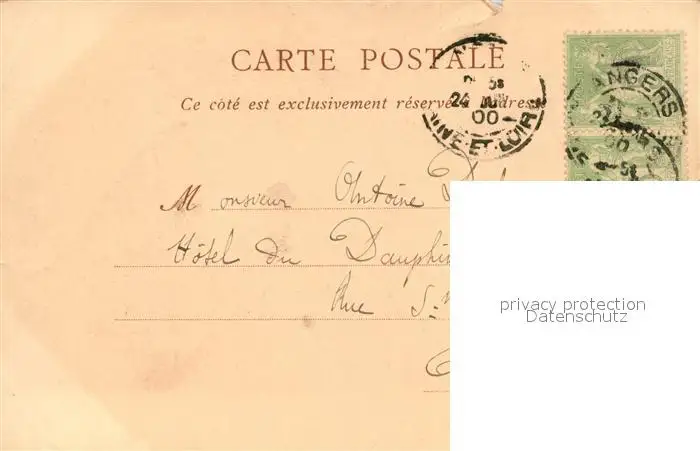 CARTE POSTALE
Ce côté est exclusivement réservé adresse
24
00
ET-LOIR
ANGERS
Monsieur Antoine
Hôtel du Dauphin
Rue St
privacy protection
Datenschutz